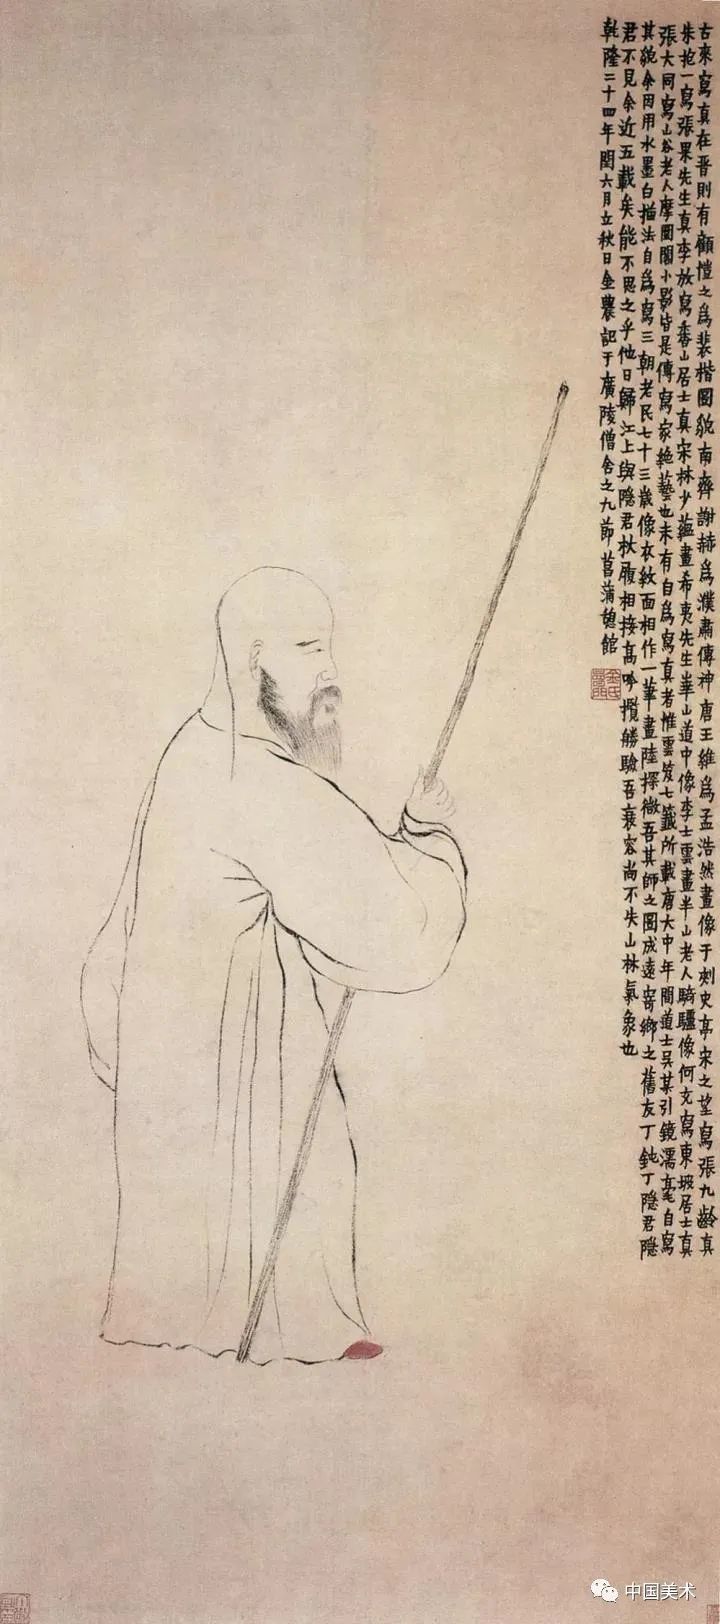 古來寫真在晉則有顧愷之為裴楷圖貌南齊謝赫為濮肅傳神唐王維為孟浩然畫像于刺史亭宋之望寫張九齡真
朱抱一寫張果先生真李放寫香山居士真宋林少蘊畫希夷先生華山道中像李士雲畫半山老人騎驢像何充寫東坡居士真
張大同寫山谷老人摩圍閣小影皆是傳寫家絕藝也未有自為寫真者惟雲笈七籤所載唐大中年間道士吳某引鏡濡毫自寫
其貌余因用水墨白描法自為寫三朝老民七十三歲像衣紋面相作一筆畫陸探微吾其師之圖成遠寄鄉之舊友丁鈍丁隱君隱
君不見余近五載矣能不思之乎他日歸江上與隱君杖履相接高吟攬勝驗吾衰容尚不失山林氣象也
乾隆二十四年閏六月立秋日金農記于廣陵僧舍之九節菖蒲憩館
中国美术